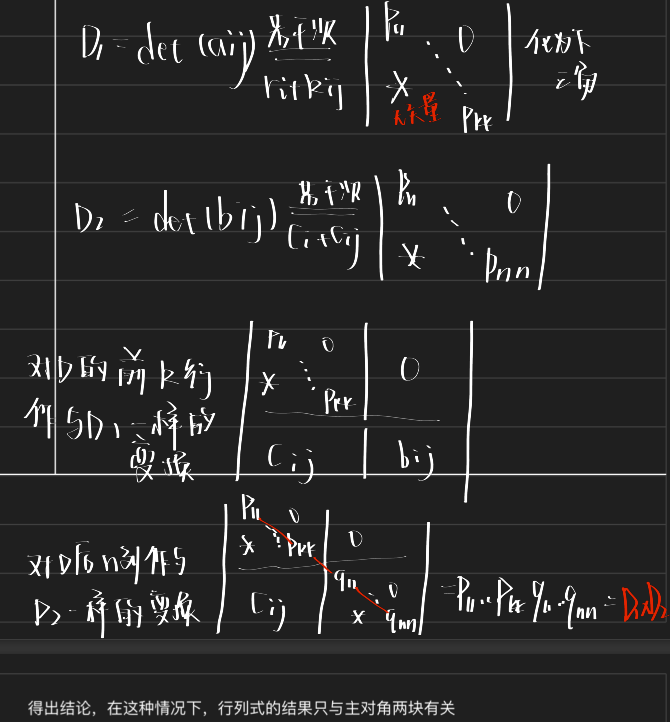 D₁ = det (aij) 若干次 ri+krj | P₁₁ 0 * Pkk | 化为下三角
D₂ = det(bij) 若干次 Ci+Cij | P₁₁ 0 * Pnn |
对D的前k行 作与D₁一样的变换 | P₁₁ 0 * Pkk | 0 | Cij | bij |
对D后n列作与 D₂一样的变换 | P₁₁ 0 * Pkk | 0 | Cij | q₁₁ 0 * qnn | = P₁₁..Pkk q₁₁..qnn = D₁D₂
得出结论，在这种情况下，行列式的结果只与主对角两块有关